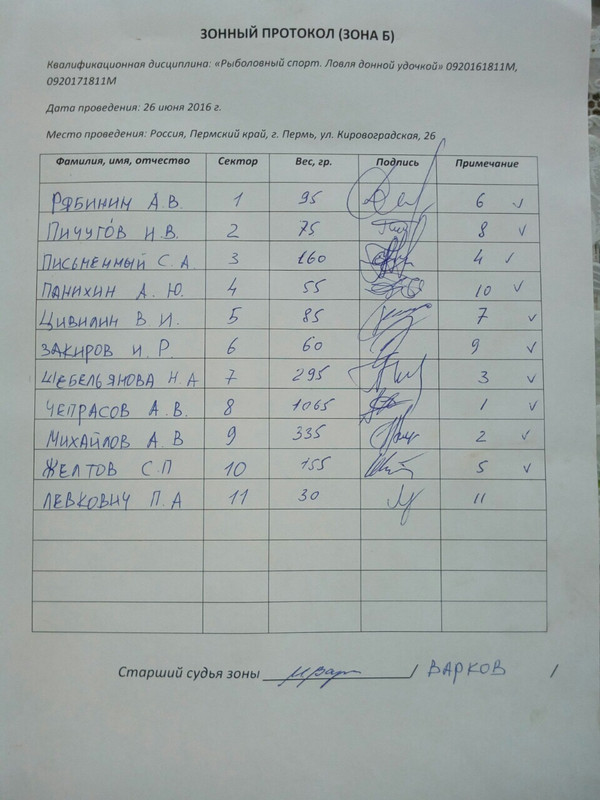 ЗОННЫЙ ПРОТОКОЛ (ЗОНА Б)
Квалификационная дисциплина: «Рыболовный спорт. Ловля донной удочкой» 0920161811М,
0920171811М
Дата проведения: 26 июня 2016 г.
Место проведения: Россия, Пермский край, г. Пермь, ул. Кировоградская, 26
Фамилия, имя, отчество Сектор Вес, гр. Подпись Примечание
РЯБИНИН А.В. 1 95 6 ✓
ПИЧУГОВ И.В. 2 75 8 ✓
ПИСЬМЕННЫЙ С.А 3 160 4 ✓
ПАНИХИН А.Ю. 4 55 10 ✓
ЦИВИЛИН В И. 5 85 7 ✓
ЗАКИРОВ И.Р. 6 60 9 ✓
ШЕБЕЛЬЯНОВА Н.А 7 295 3 ✓
ЧЕПРАСОВ А.В. 8 1065 1 ✓
МИХАЙЛОВ А.В 9 335 2 ✓
ЖЕЛТОВ С.П 10 155 5 ✓
ЛЕВКОВИЧ П.А 11 30 11
Старший судья зоны / ВАРКОВ /